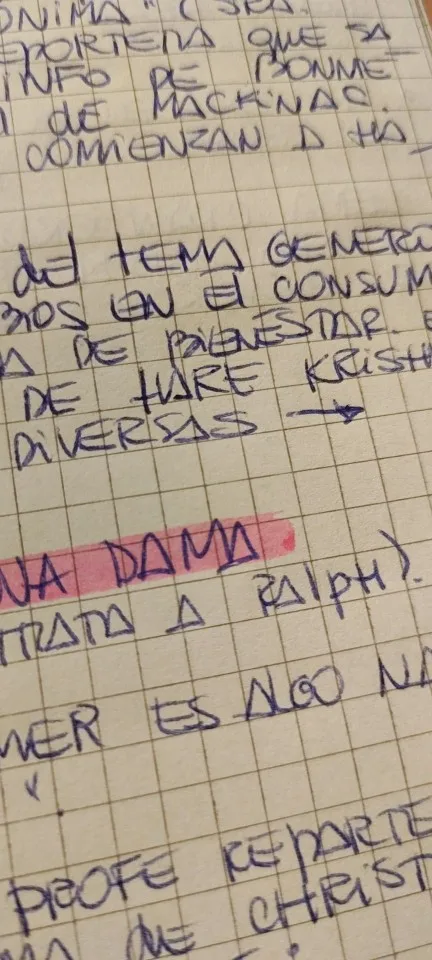 ÓNIMA" (SRA.
REPORTERA QUE SA_
INFO DE BONME
DE MACKINAC.
COMIENZAN A HA_
DEL TEMA GENERÓ
BIOS EN EL CONSUM
A DE BIENESTAR.
DE HARE KRISH
DIVERSAS →
NA DAMA
TRATA A RALPH).
NER ES ALGO NA
PROFE REPARTE
DE CHRIST